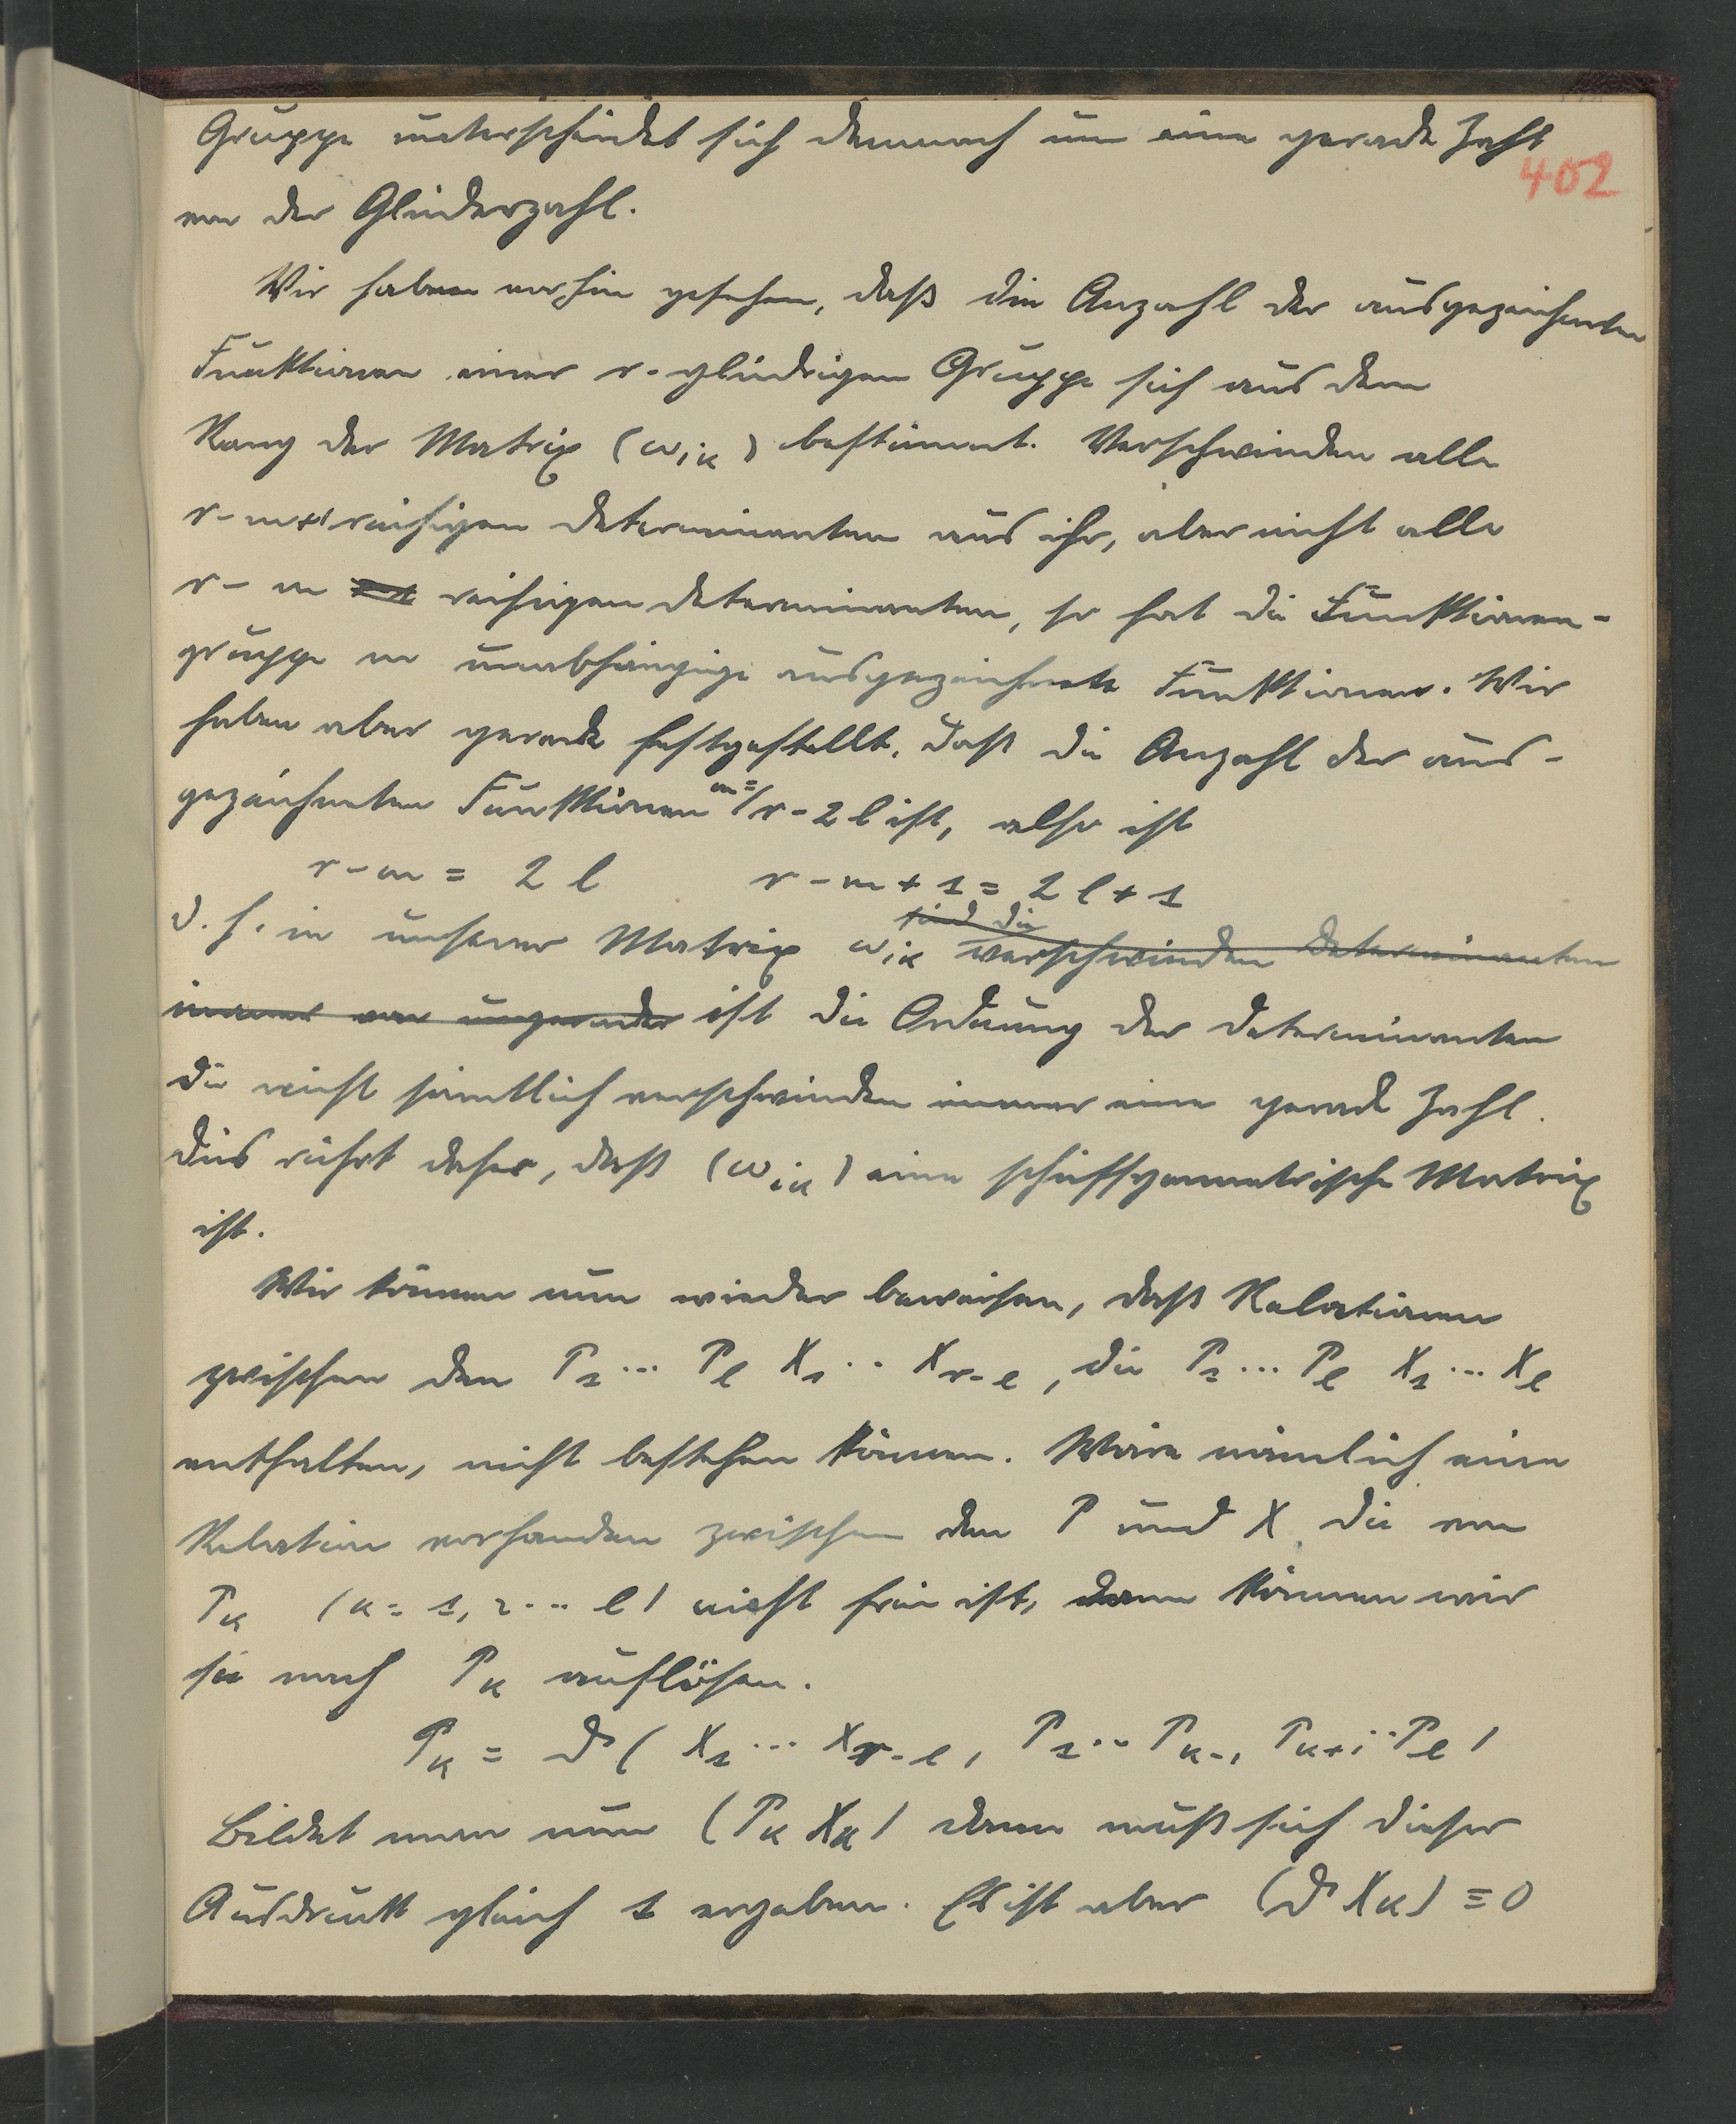 Gruppe unterscheidet sich demnach um eine gerade Zahl
402
von der Gliederzahl.
Wir haben vorhin gesehen, daß die Anzahl der ausgezeichneten
Funktionen einer r-gliedrigen Gruppe sich aus dem
Rang der Matrix (ω_ik) bestimmt. Verschwinden alle
r-m+1 reihigen Determinanten aus ihr, aber nicht alle
r-m reihigen Determinanten, so hat die Funktionen-
gruppe m unabhängige ausgezeichnete Funktionen. Wir
haben aber gerade festgestellt, daß die Anzahl der aus-
gezeichneten Funktionen m = r-2l ist, also ist
r-m = 2l r-m+1 = 2l+1
d.h. in unserer Matrix ω_ik sind die verschwinden Determinanten
immer von ungerader ist die Ordnung der Determinanten
die nicht sämtlich verschwinden immer eine gerade Zahl.
Dies rührt daher, daß (ω_ik) eine schiefsymmetrische Matrix
ist.
Wir können nun wieder beweisen, daß Relationen
zwischen den P_1 ... P_l X_1 .. X_r-l, die P_1 ... P_l X_1 ... X_l
enthalten, nicht bestehen können. Wäre nämlich eine
Relation vorhanden zwischen den P und X, die von
P_κ (κ = 1, 2 ... l) nicht frei ist, dann können wir
sie nach P_κ auflösen.
P_κ = ϑ(X_1 ... X_r-l, P_1 .. P_κ-1, P_κ+1 .. P_l)
Bildet man nun (P_κ X_κ) dann muß sich dieser
Ausdruck gleich 1 ergeben. Es ist aber (ϑ X_κ) ≡ 0